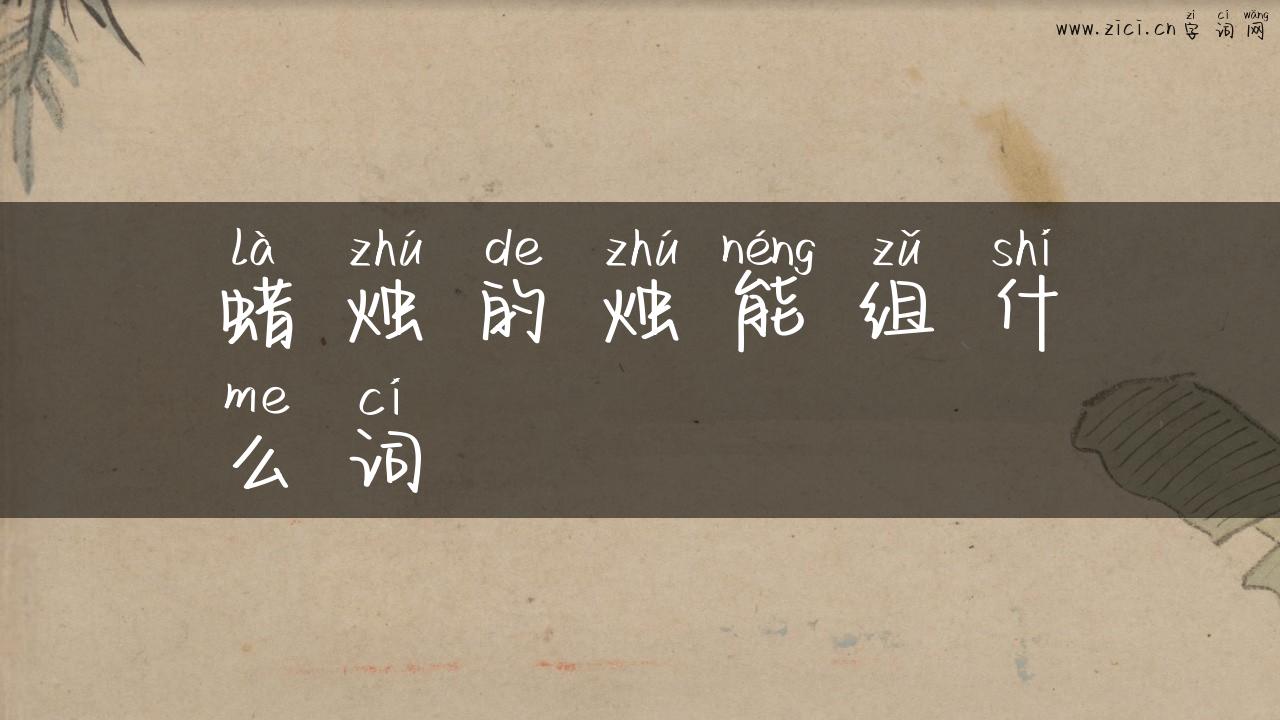 zì cí wǎng
www.zici.cn 字词网
là zhú de zhú néng zǔ shí
蜡烛的烛能组什
me cí
么词